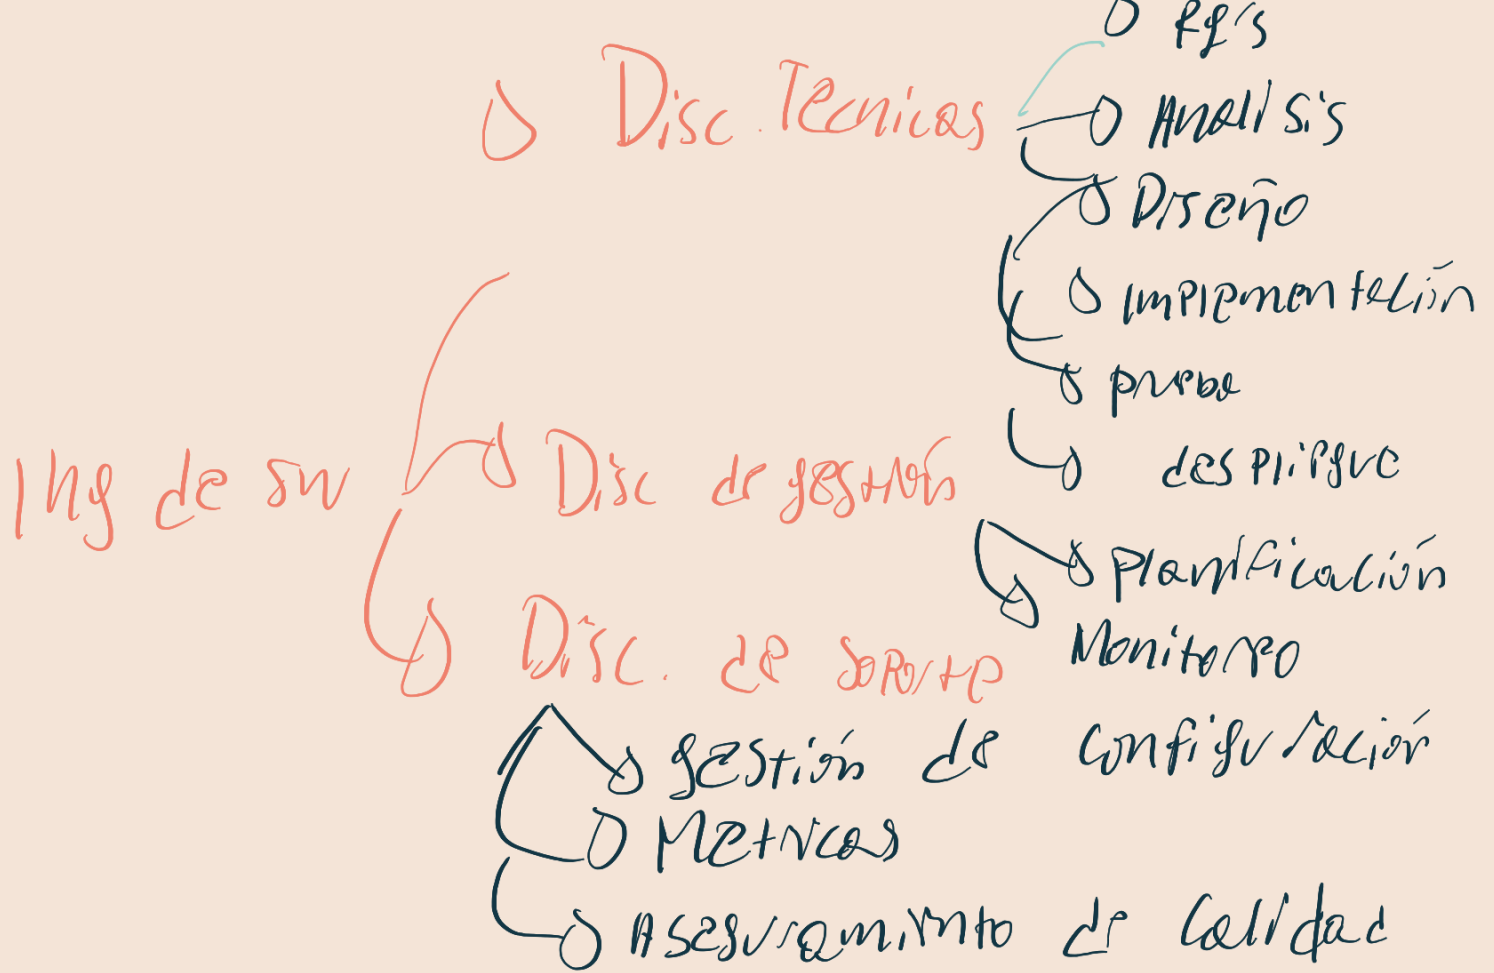 Ing de sw
Disc. Técnicas
Rq's
Analisis
Diseño
Implementación
prueba
despliegue
Disc de gestión
planificación
Monitoreo
Disc. de soporte
gestión de configuración
Metricas
Aseguramiento de Calidad